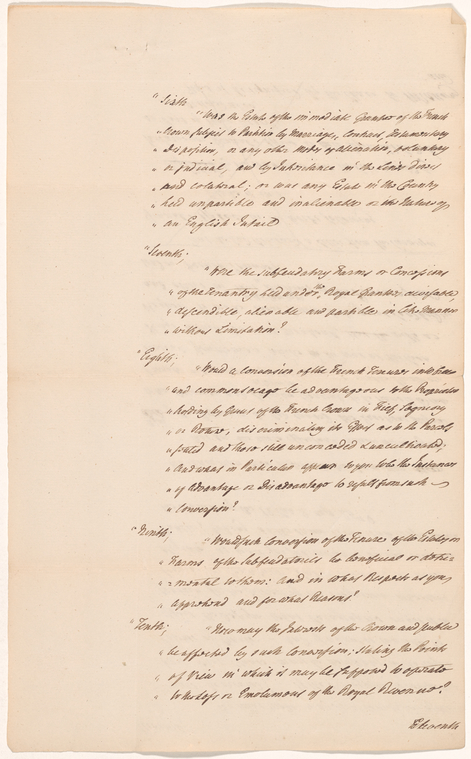 " Sixth
" Was the Estate of the immediate Grantee of the French
" Crown subject to Partition by Marriage, Contract, Testamentary
" Disposition, or any other Modes of Alienation, voluntary
" or judicial, and by Inheritance in the Lines direct
" and colateral; or was any Estate in the Country
" held unpartible and inalienable or in the Nature of
" an English Intail
" Seventh;
" Were the subfeudatory Farms or Concessions
" of the Tenantry held under the Royal Grantees devisable,
" descendible, alienable and partible in like Manner
" without Limitation?
" Eighth;
" Would a conversion of the French Tenures into free
" and common socage be advantageous to the Proprietor
" holding by Grant of the French Crown in Fief, Seigneury
" or discriminating its Effects as to the Parcels
" and those still unconceded & uncultivated;
" And what in Particular appear to you to be the Instances
" of Advantage or Disadvantage to result from such
" Conversion?
" Ninth;
" Would such Conversion of the Tenure of the Estates or
" Farms of the Subfeudatories be beneficial or detri-
" =mental to them: And in what Respects as you
" apprehend and for what Reasons?
" Tenth;
" How may the Interests of the Crown and publick
" be affected by such Conversion; stating the Points
" of View in which it may be supposed to operate
" to the Loss or Emolument of the Royal Revenue?
Eleventh